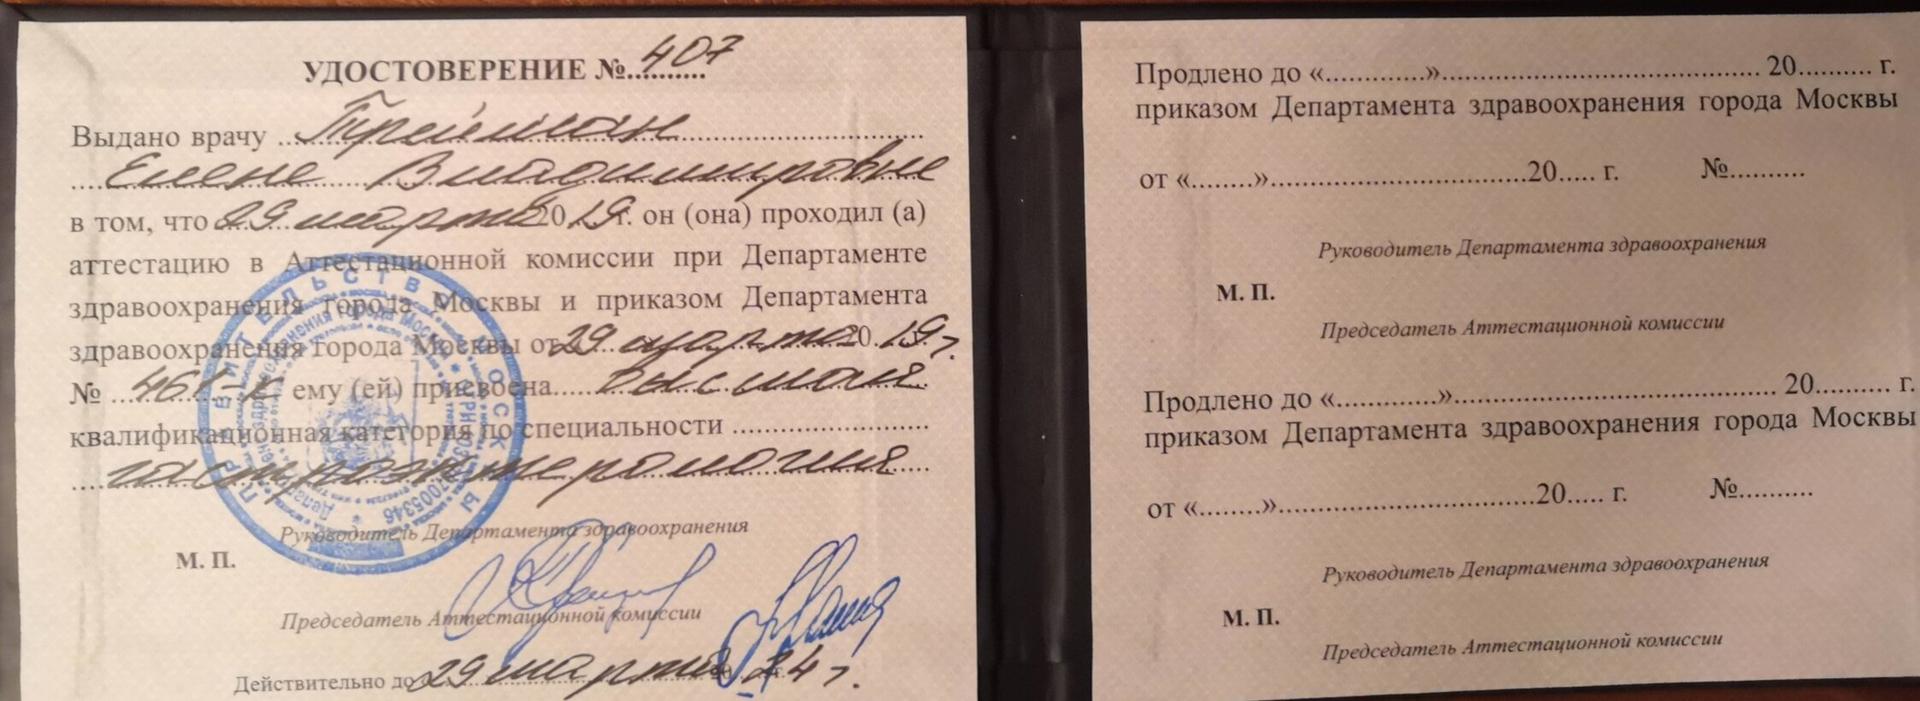 УДОСТОВЕРЕНИЕ №..........407
Выдано врачу Трейман
Елене Владимировне
в том, что 29 марта 2019 г. он (она) проходил (а)
аттестацию в Аттестационной комиссии при Департаменте
здравоохранения города Москвы и приказом Департамента
здравоохранения города Москвы от 29 марта 2019 г.
№ 461-к ему (ей) присвоена высшая
квалификационная категория по специальности
гастроэнтерология
Руководитель Департамента здравоохранения
М. П.
Председатель Аттестационной комиссии
Действительно до 29 марта 2024 г.
Продлено до «.............»............................................ 20.......... г.
приказом Департамента здравоохранения города Москвы
от «........»....................................20..... г. №..........
Руководитель Департамента здравоохранения
М. П.
Председатель Аттестационной комиссии
Продлено до «.............»............................................ 20.......... г.
приказом Департамента здравоохранения города Москвы
от «........»....................................20..... г. №..........
Руководитель Департамента здравоохранения
М. П.
Председатель Аттестационной комиссии